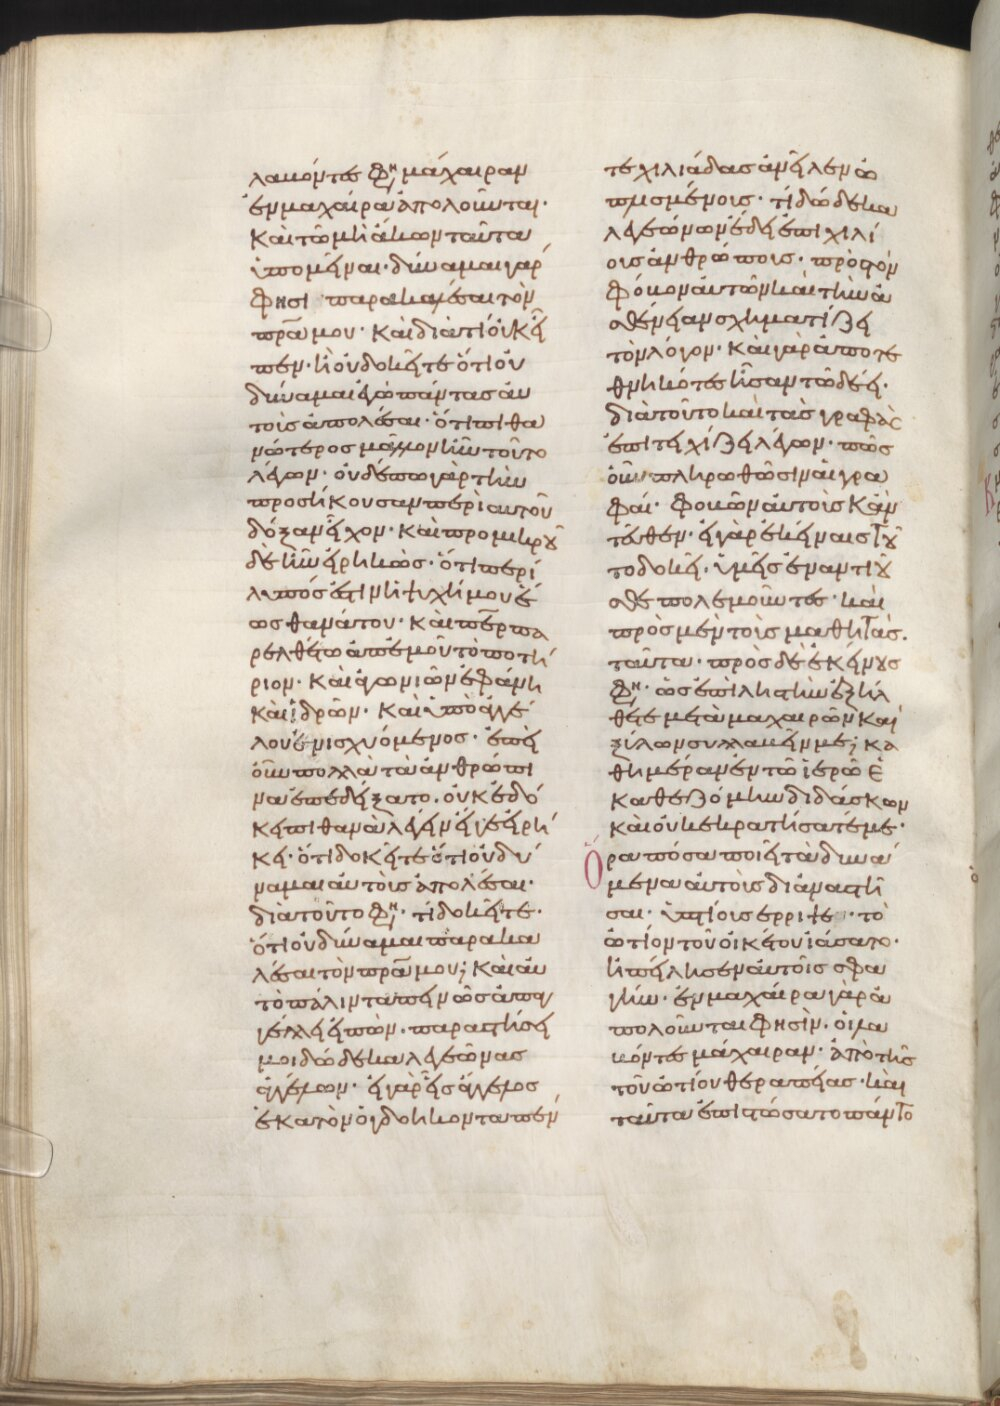 λαβόντες φη(σι) μάχαιραν
ἐν μαχαίρα ἀπολοῦνται·
καὶ τῶ μὴ ἄκων ταῦτα
ὑπομεῖναι· δύναμαι γάρ
φησι παρακαλέσαι τὸν
πρα μου· καὶ διατί οὐκ εἶ
πεν· ἢ οὐ δοκεῖτε ὅτι οὐ
δύναμαι ἐγὼ πάντας αὐ
τοὺς ἀπολέσαι· ὅτι πιθα
νώτερος μᾶλλον ἦν τοῦτο
λέγων· οὐδέπω γὰρ τὴν
προσήκουσαν περὶ αὐτοῦ
δόξαν εἶχον· καὶ προμικροῦ
δὲ ἦν εἰρηκὼς· ὅτι περί
λυπός ἐστιν ἡ ψυχή μου ἕ
ως θανάτου· καὶ περ πα
ρελθέτω ἀπ' ἐμοῦ τὸ ποτή
ριον· καὶ ἀγωνιῶν ἐφάνη
καὶ ἱδρῶν· καὶ ὑπὸ ἀγγέ
λου ἐνισχυόμενος· ἐπεὶ
οὖν πολλὰ τὰ ἀνθρώπι
να ἐπεδείξατο, οὐκ ἐδό
κει πιθανὰ λέγειν εἰ εἰρή
κει· ὅτι δοκεῖτε ὅτι οὐ δύ
ναμαι αὐτοὺς ἀπολέσαι·
διὰ τοῦτο φη· τί δοκεῖτε·
ὅτι οὐ δύναμαι παρακα
λέσαι τὸν πρα μου; καὶ αὐ
τὸ πάλιν ταπεινῶς ἀπαγ
γέλλει εἰπὼν· παραστήσει
μοι δώδεκα λεγεῶνας
ἀγγέλων· εἰ γὰρ εἷς ἄγγελος
ἑκατὸν ὀγδοήκοντα πέν
τε χιλιάδας ἀνεῖλεν ὡ
πλισμένοις· τί δώδεκα
λεγεώνων ἔδει ἐπὶ χιλί
οις ἀνθρώποις· πρὸς τὸν
φόβον αὐτῶν καὶ τὴν ἀ
σθένειαν σχηματίζει
τὸν λόγον· καὶ γὰρ ἀποτε
θνηκότες ἦσαν τῶ δέει·
διὰ τοῦτο καὶ τὰς γραφὰς
ἐπιτειχίζει λέγων· πῶς
οὖν πληρωθῶσιν αἱ γρα
φαί· φοβῶν αὐτοὺς κἀν
τεῦθεν· εἰ γὰρ ἐκείναις τοῦ
το δοκεῖ, ὑμεῖς ἐναντιοῦ
σθε πολεμοῦντες· καὶ
πρὸς μὲν τοὺς μαθητάς.
ταῦτα· πρὸς δὲ ἐκείνους
φη· ὡς ἐπὶ ληστὴν ἐξήλ
θετε μετὰ μαχαιρῶν καὶ
ξύλων συλλαβεῖν με; κα
θημέραν ἐν τῶ ἱερῶ ἐ
καθεζόμην διδάσκων
καὶ οὐκ ἐκρατήσατέ με·
Ορα πόσα ποιεῖ τὰ δυνά
μενα αὐτοὺς διαναστῆ
σαι· ὑπτίους ἔρριψε· τὸ
ὠτίον τοῦ οἰκέτου ἰάσατο·
ἠπείλησεν αὐτοῖς σφα
γὴν· ἐν μαχαίρα γὰρ ἀ
πολοῦνται φησὶν· οἱ λα
βόντες μάχαιραν· ἀπὸ τῆς
τοῦ ὠτίου θεραπείας· καὶ
ταῦτα ἐπιστώσατο πάντο